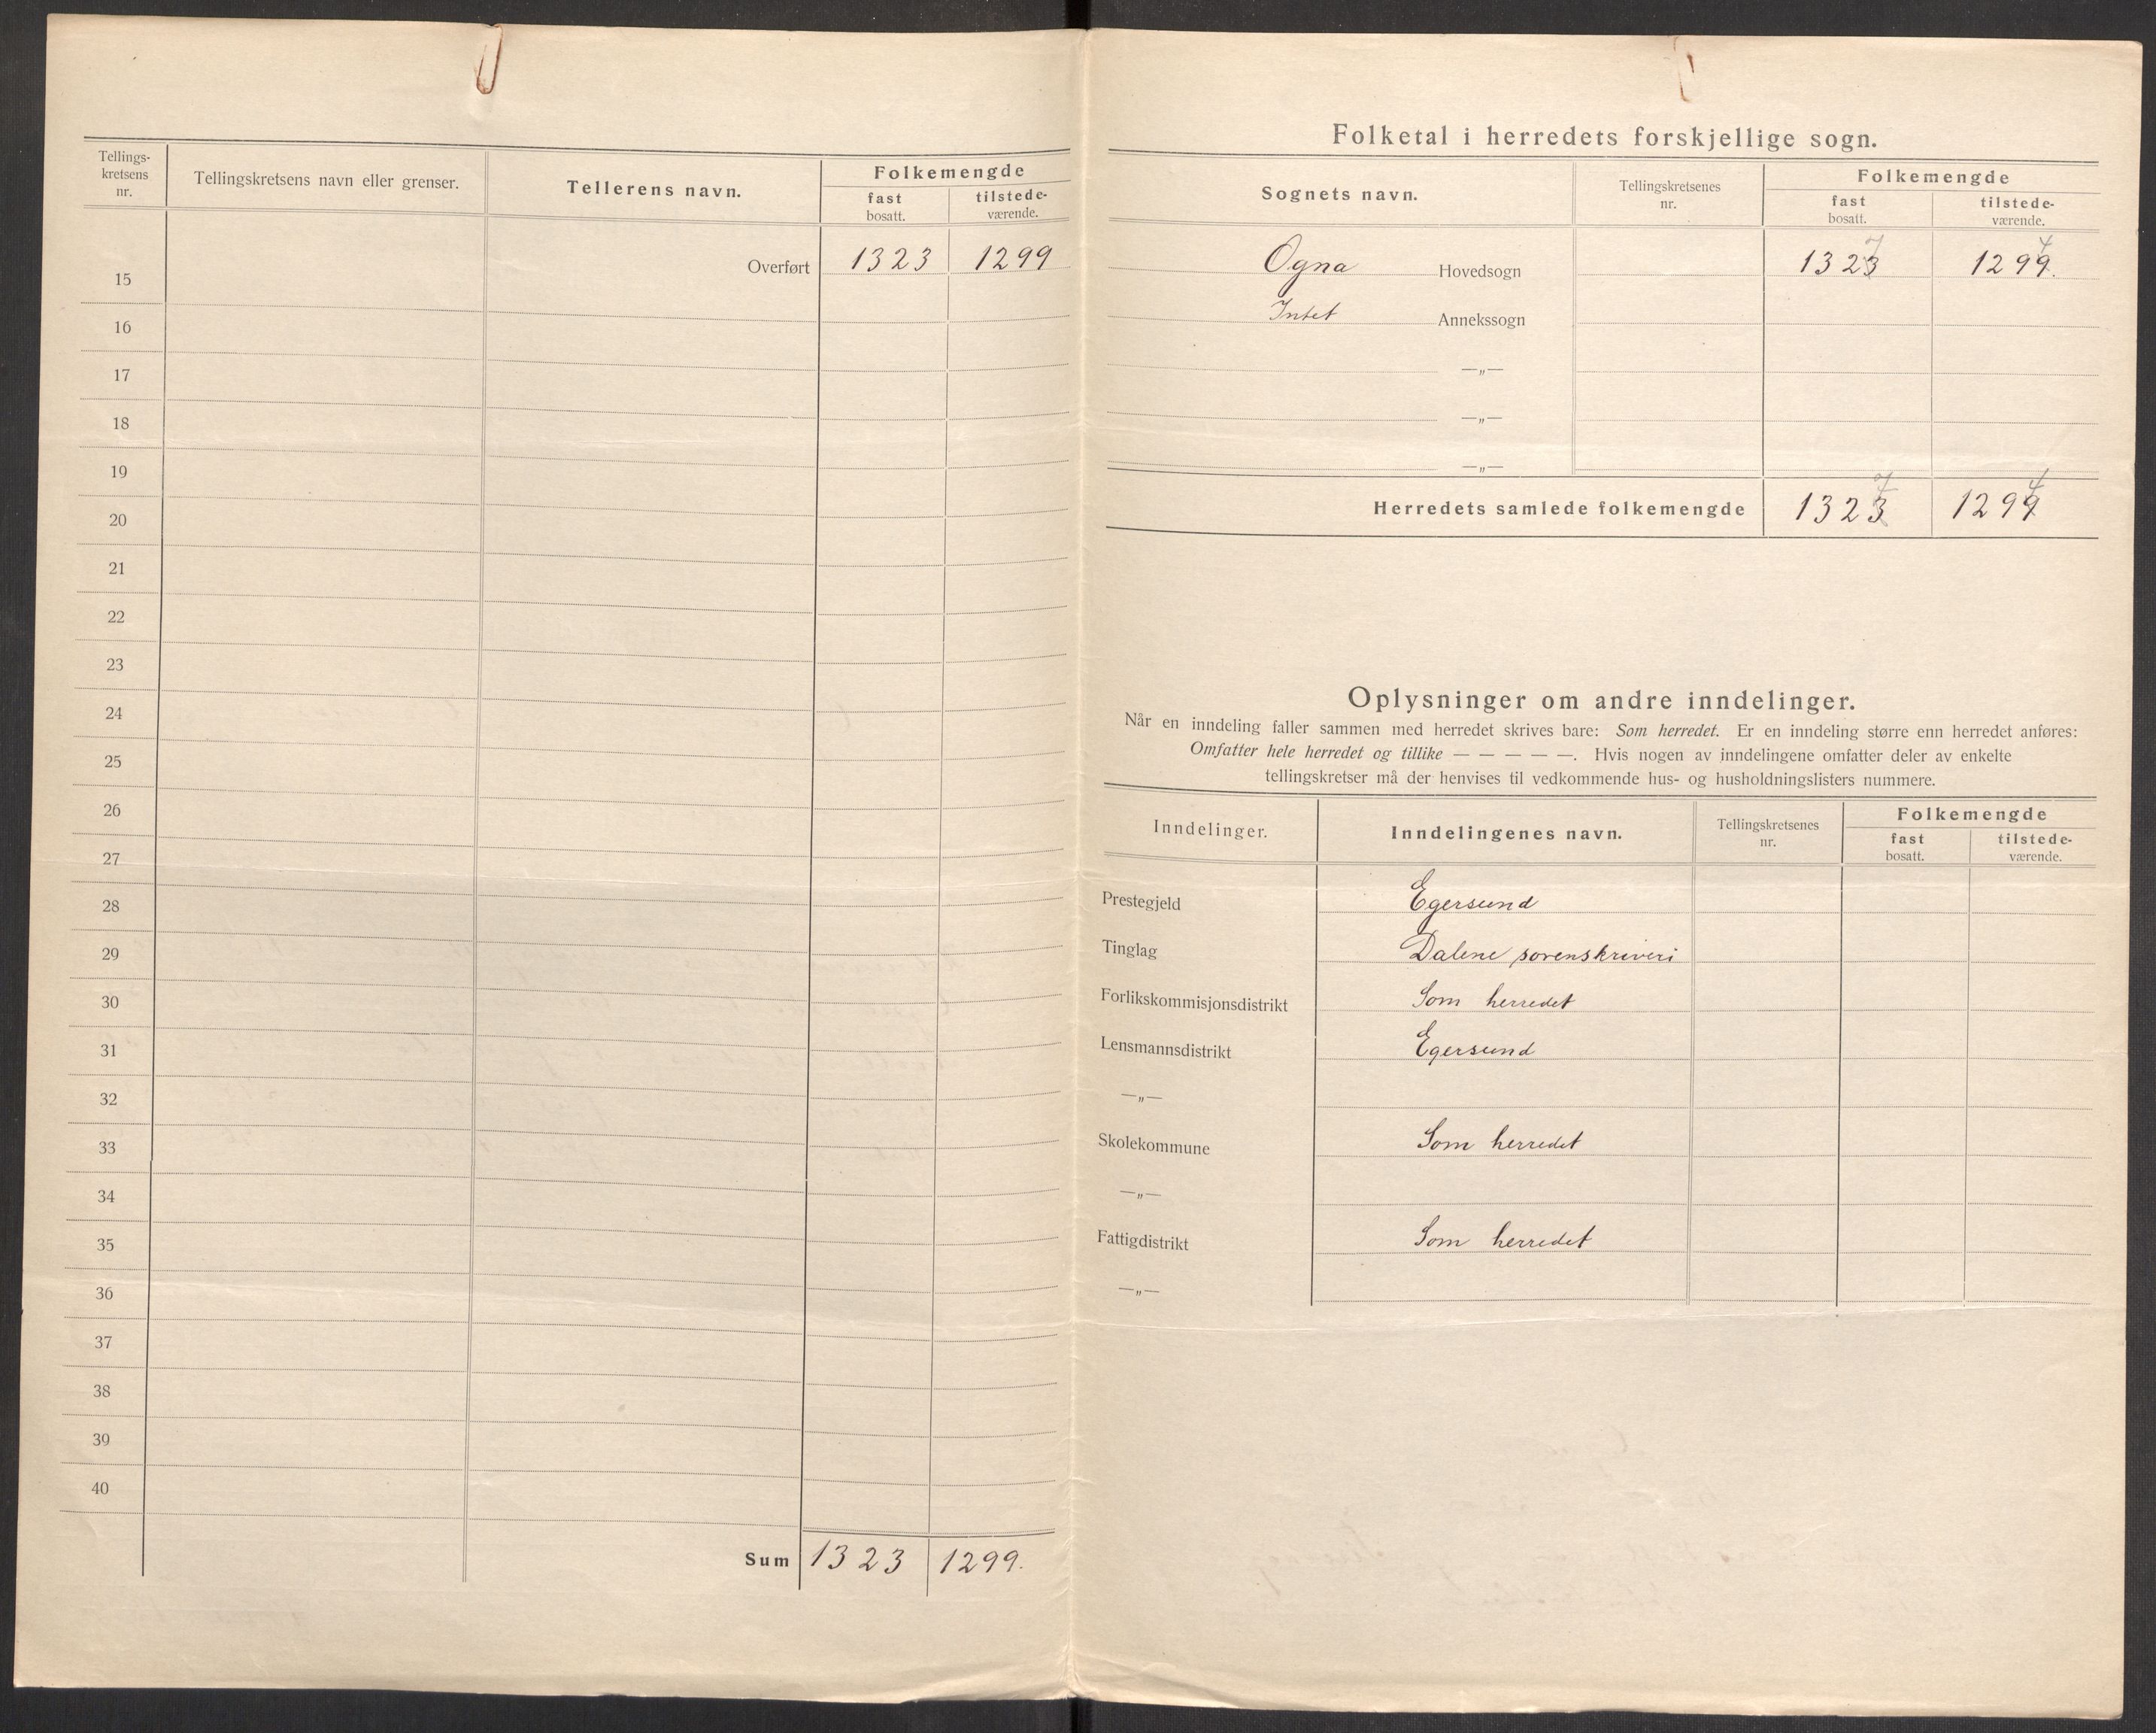 Tellings-
kretsens
nr.
Tellingskretsens navn eller grenser.
Tellerens navn.
Folkemengde
fast
bosatt.
tilstede-
værende.
Overført 1323 1299
15
16
17
18
19
20
21
22
23
24
25
26
27
28
29
30
31
32
33
34
35
36
37
38
39
40
Sum 1323 1299.
Folketal i herredets forskjellige sogn.
Sognets navn.
Tellingskretsenes
nr.
Folkemengde
fast
bosatt.
tilstede-
værende.
7 4
Ogna Hovedsogn 1323 1299.
Intet Annekssogn
—„—
—„—
—„—
7 4
Herredets samlede folkemengde 1323 1299
Oplysninger om andre inndelinger.
Når en inndeling faller sammen med herredet skrives bare: Som herredet. Er en inndeling større enn herredet anføres:
Omfatter hele herredet og tillike — — — — —. Hvis nogen av inndelingene omfatter deler av enkelte
tellingskretser må der henvises til vedkommende hus- og husholdningslisters nummere.
Inndelinger.
Inndelingenes navn.
Tellingskretsenes
nr.
Folkemengde
fast
bosatt.
tilstede-
værende.
Prestegjeld Egersund
Tinglag Dalene sorenskriveri
Forlikskommisjonsdistrikt Som herredet
Lensmannsdistrikt Egersund
—„—
Skolekommune Som herredet
—„—
Fattigdistrikt Som herredet
—„—